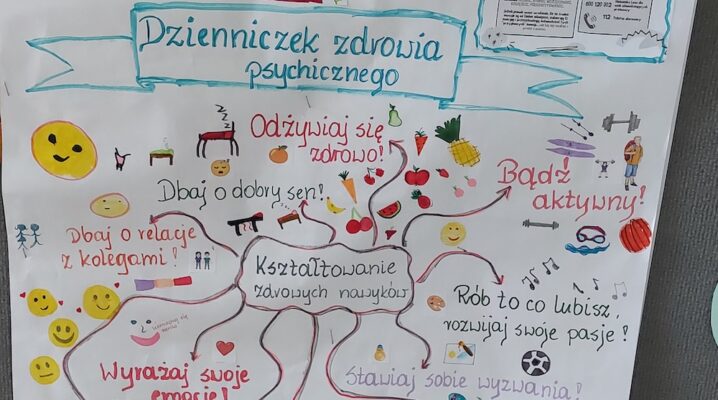 Dzienniczek zdrowia
psychicznego
600 120 002
112
Odżywiaj się
zdrowo!
Dbaj o dobry sen!
Bądź
aktywny!
Dbaj o relacje
z kolegami!
Kształtowanie
zdrowych nawyków
Rób to co lubisz,
rozwijaj swoje pasje!
Wyrażaj swoje
emocje!
Stawiaj sobie wyzwania!